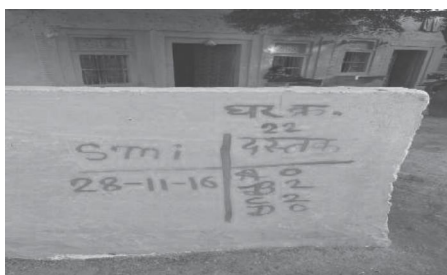 घर क्र.
22
Smi दस्तक
28-11-16 A 0
B 2
C 2
D 0